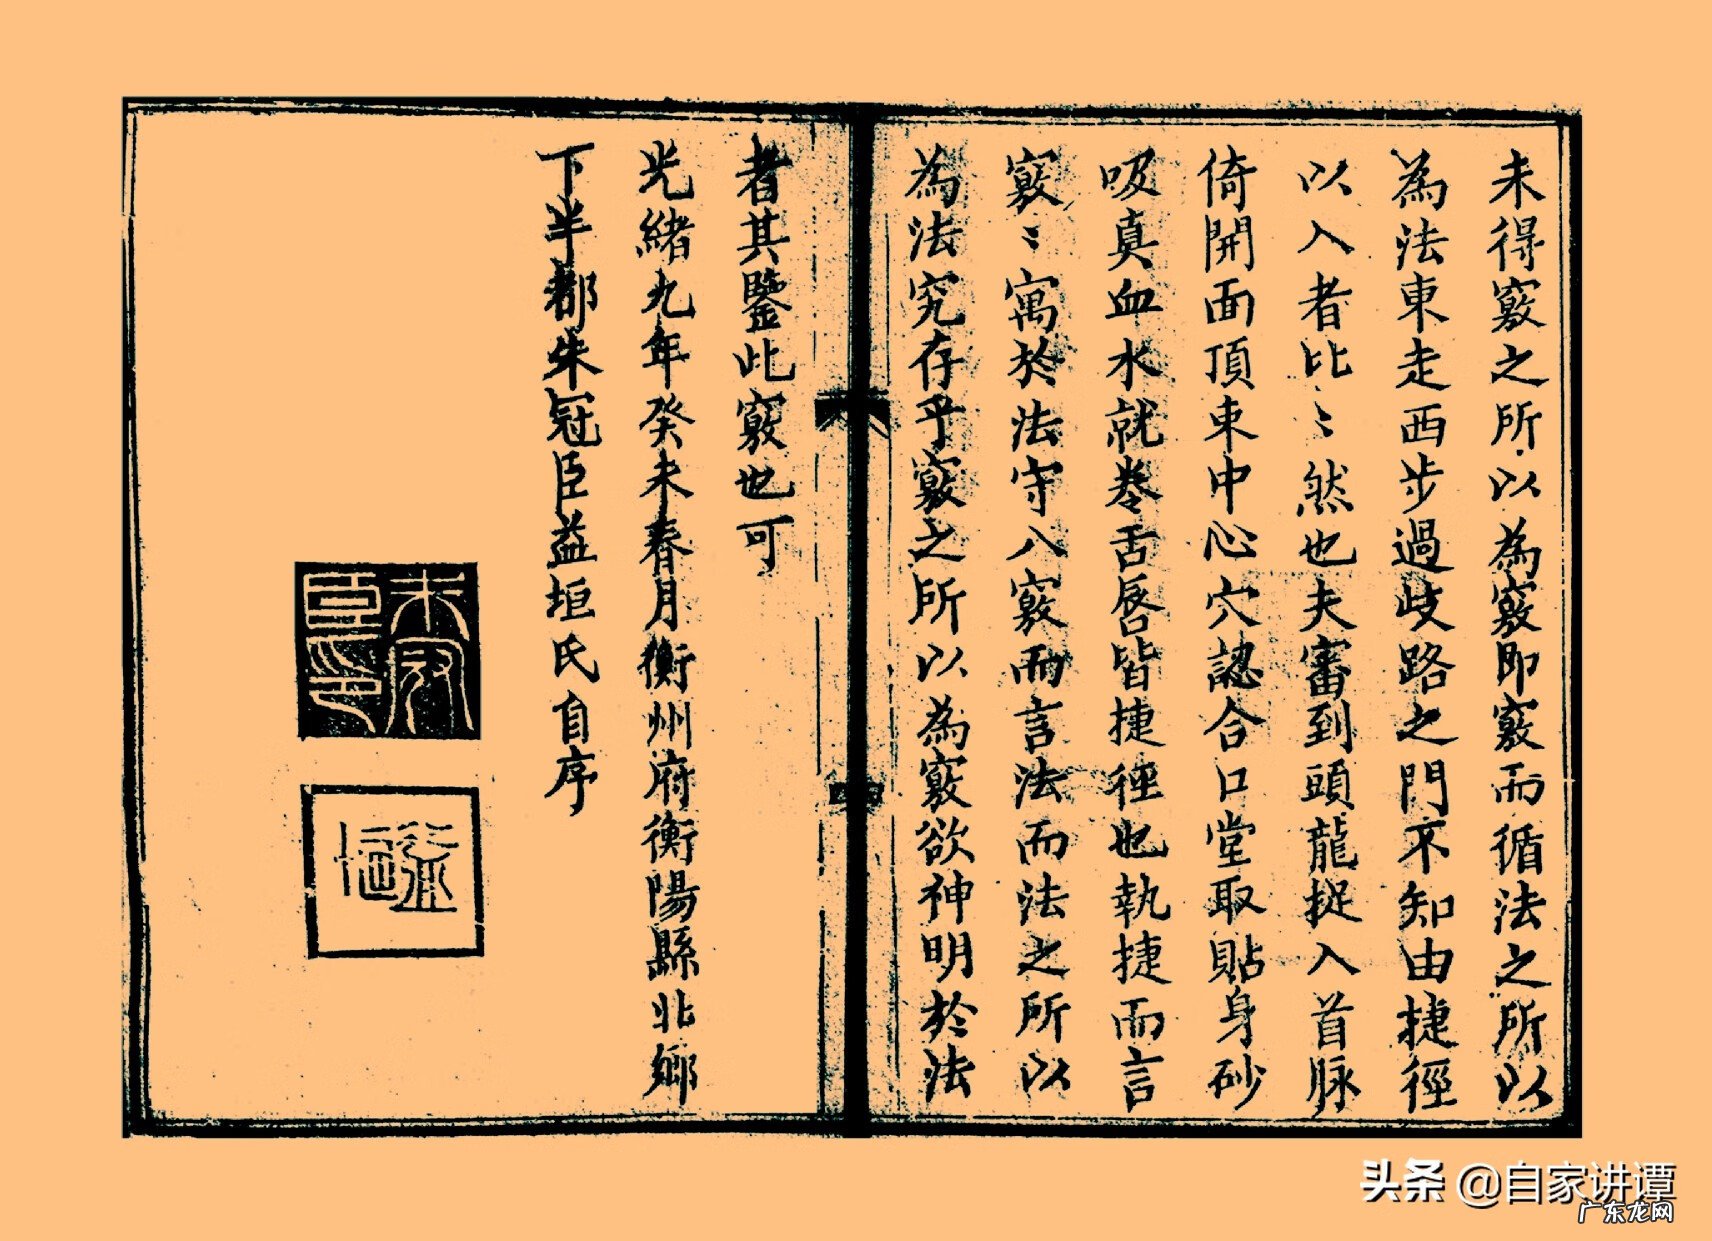 未得竅之所以為竅即竅而循法之所以
為法東走西步過歧路之門不知由捷徑
以入者比〻然也夫審到頭龍捉入首脉
倚開面頂東中心穴認合口堂取貼身砂
吸真血水就卷舌唇皆捷徑也執捷而言
竅〻寓於法守八竅而言法而法之所以
為法究存乎竅之所以為竅欲神明於法
者其鑒此竅也可
光緒九年癸未春月衡州府衡陽縣北鄉
下半都朱冠臣益垣氏自序
朱冠臣印
益垣
头条 @自家讲谭
广东龙网